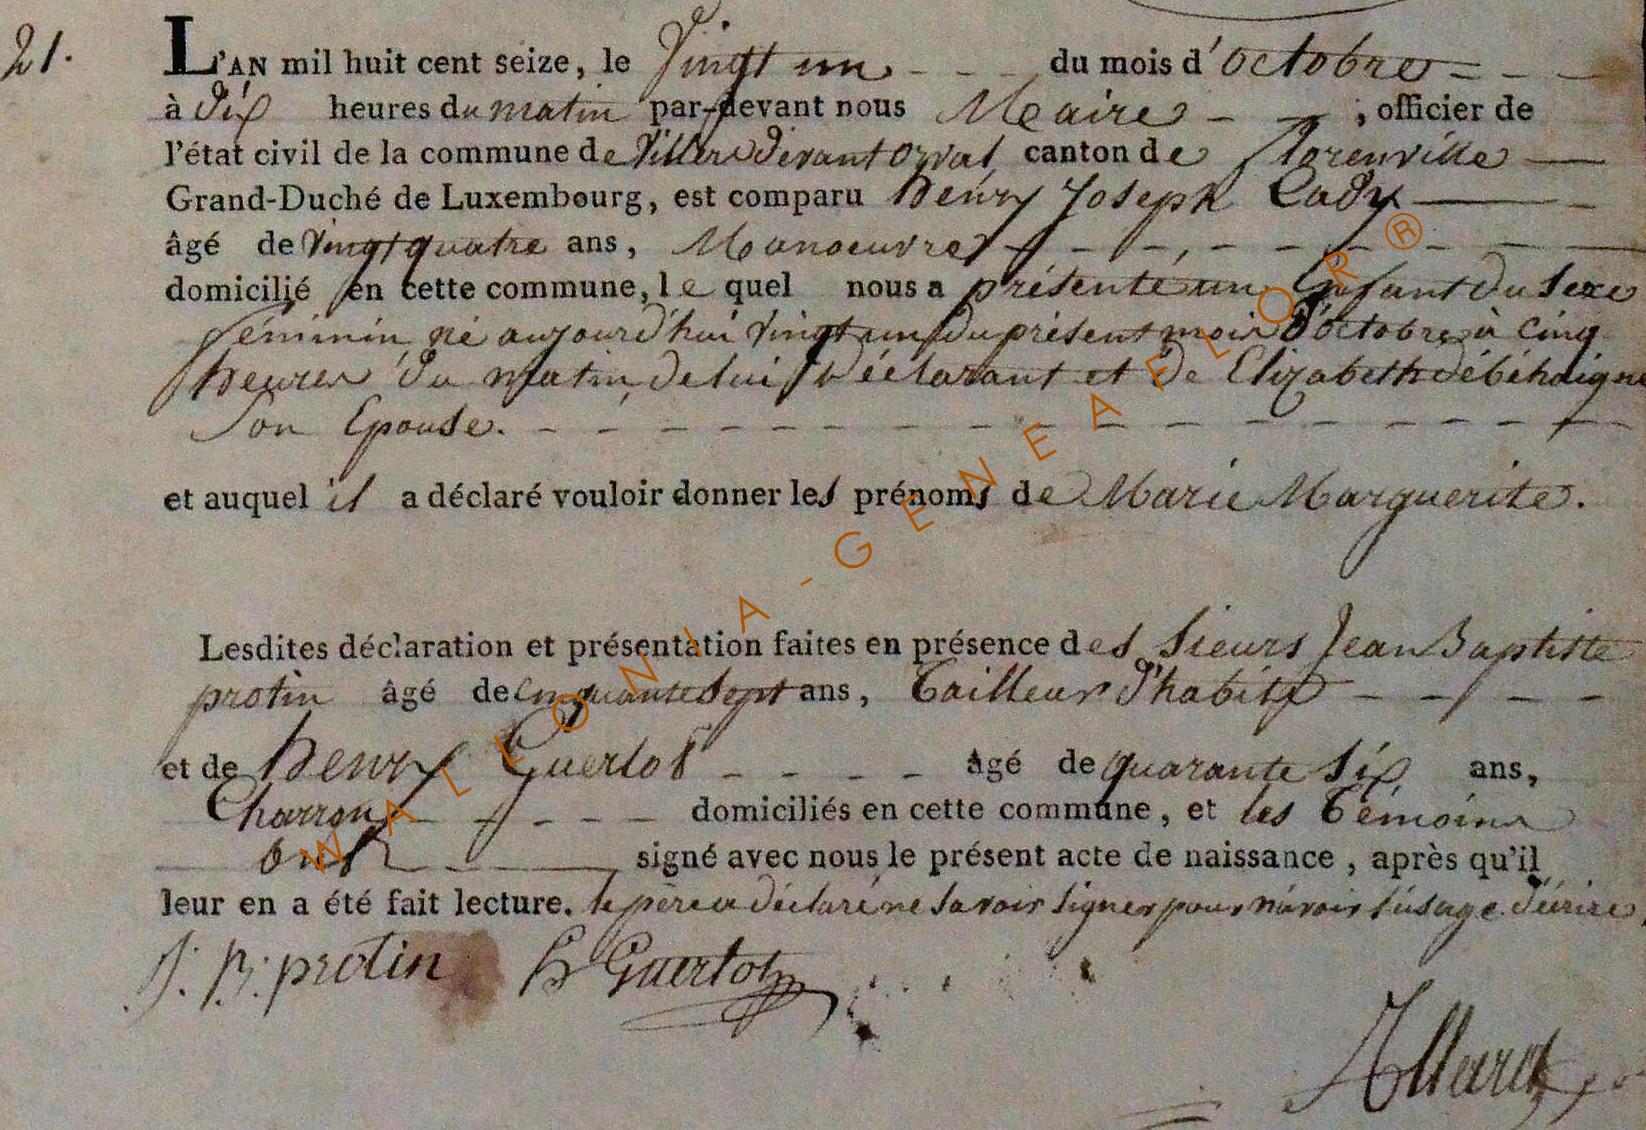 21.
L'AN mil huit cent seize, le Vingt un du mois d'octobre
à dix heures du matin par-devant nous Maire, officier de
l'état civil de la commune de Villers devant orval canton de florenville
Grand-Duché de Luxembourg, est comparu henry Joseph Cady
âgé de vingt quatre ans, Manoeuvre
domicilié en cette commune, le quel nous a présenté un Enfant du Sexe
féminin né aujourd'hui vingt un du présent mois d'octobre à cinq
heures du matin, de lui déclarant et de Elizabeth débéhaigne
Son Epouse.
et auquel il a déclaré vouloir donner les prénoms de Marie Marguerite.
Lesdites déclaration et présentation faites en présence des Sieurs Jean Baptiste
protin âgé de cinquante Sept ans, Tailleur d'habits
et de henry Guerlot âgé de quarante Six ans,
Charron domiciliés en cette commune, et les Témoins
ont signé avec nous le présent acte de naissance, après qu'il
leur en a été fait lecture. le père a déclaré ne Savoir Signer pour n'avoir l'usage d'écrire,
J. B. protin h Guerlot
Allard
WALLONIA-GENEAFLOR®